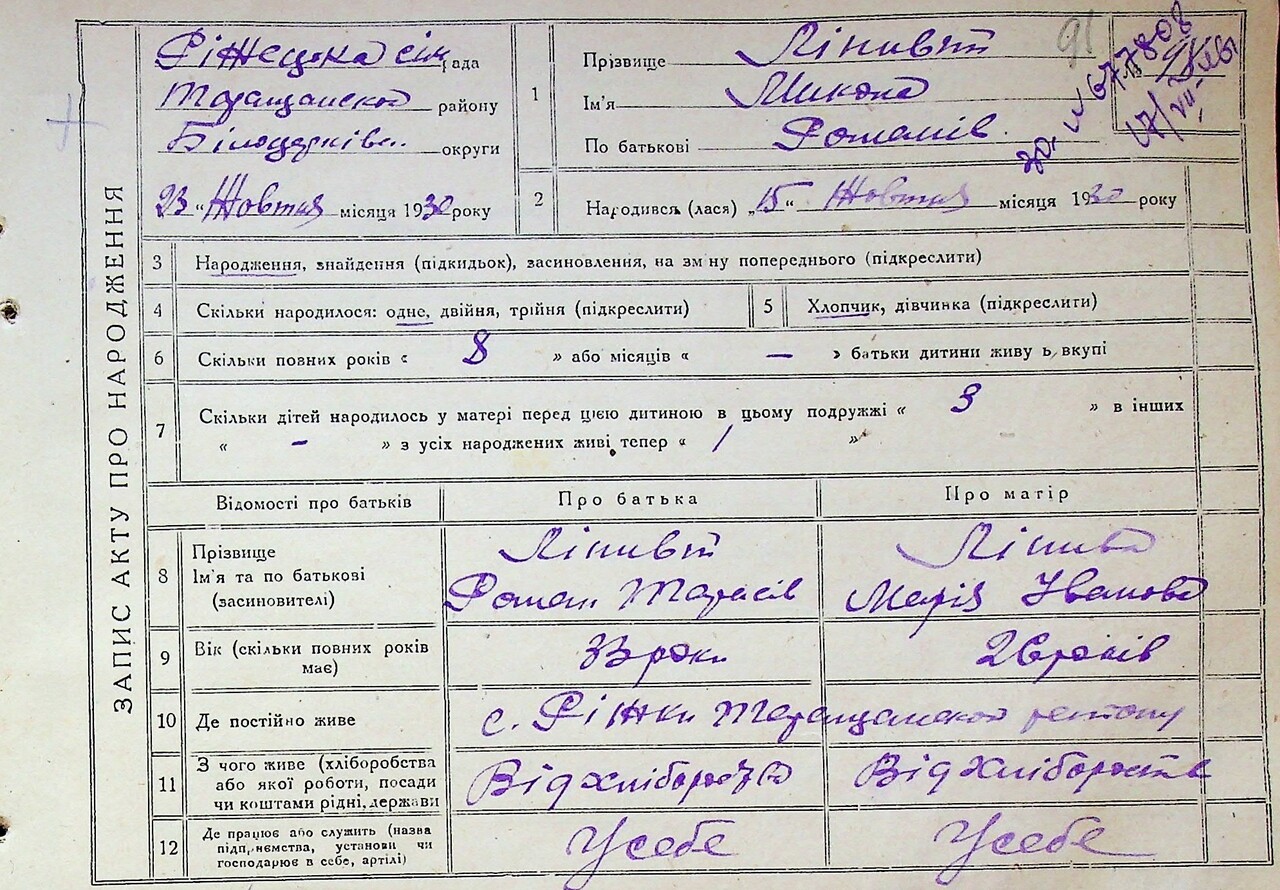 ЗАПИС АКТУ ПРО НАРОДЖЕННЯ
Ріжецька сіл рада
Таращанской району
Білоцерківс.. округи
23 "Жовтня місяця 1930 року
1
Прізвище Лінивий
Ім'я Микола
По батькові Романів.
91
2
Народився (лася) „15" Жовтня місяця 1930 року
3 Народження, знайдення (підкидьок), засиновлення, на зм ну попереднього (підкреслити)
4 Скільки народилося: одне, двійня, трійня (підкреслити)
5 Хлопчик, дівчинка (підкреслити)
6 Скільки повних років « 8 » або місяців « — » батьки дитини живу ь, вкупі
7 Скільки дітей народилось у матері перед цією дитиною в цьому подружжі « 3 » в інших
« – » з усіх народжених живі тепер « 1 »
Відомості про батьків Про батька Про матір
8 Прізвище
Ім'я та по батькові
(засиновителі)
Лінивий
Роман Тарасів
Лінива
Марія Іванова
9 Вік (скільки повних років
має)
33 роки
26 років
10 Де постійно живе
с. Ріжки Таращанской району
11 З чого живе (хліборобства
або якої роботи, посади
чи коштами рідні, держави
Від хлібороства
Від хлібороств
12 Де працює або служить (назва
підприємства, установи чи
господарює в себе, артілі)
Усебе
Усебе